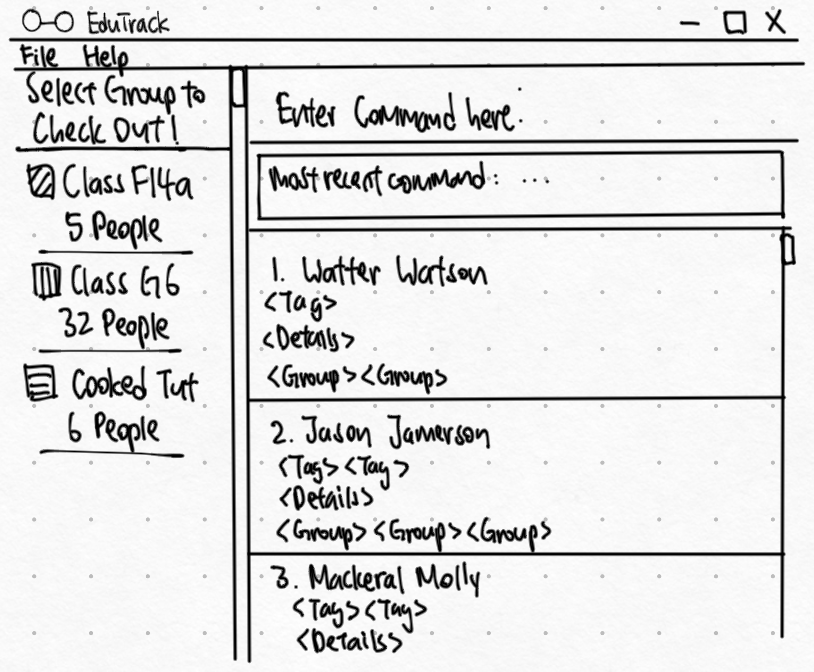 EduTrack
File Help
Select Group to
Check Out!
Class F14a
5 People
Class G6
32 People
Cooked Tut
6 People
Enter Command here:
Most recent command: ...
1. Watter Watson
<Tag>
<Details>
<Group><Group>
2. Jason Jamerson
<Tags><Tag>
<Details>
<Group><Group><Group>
3. Mackeral Molly
<Tag><Tag>
<Details>